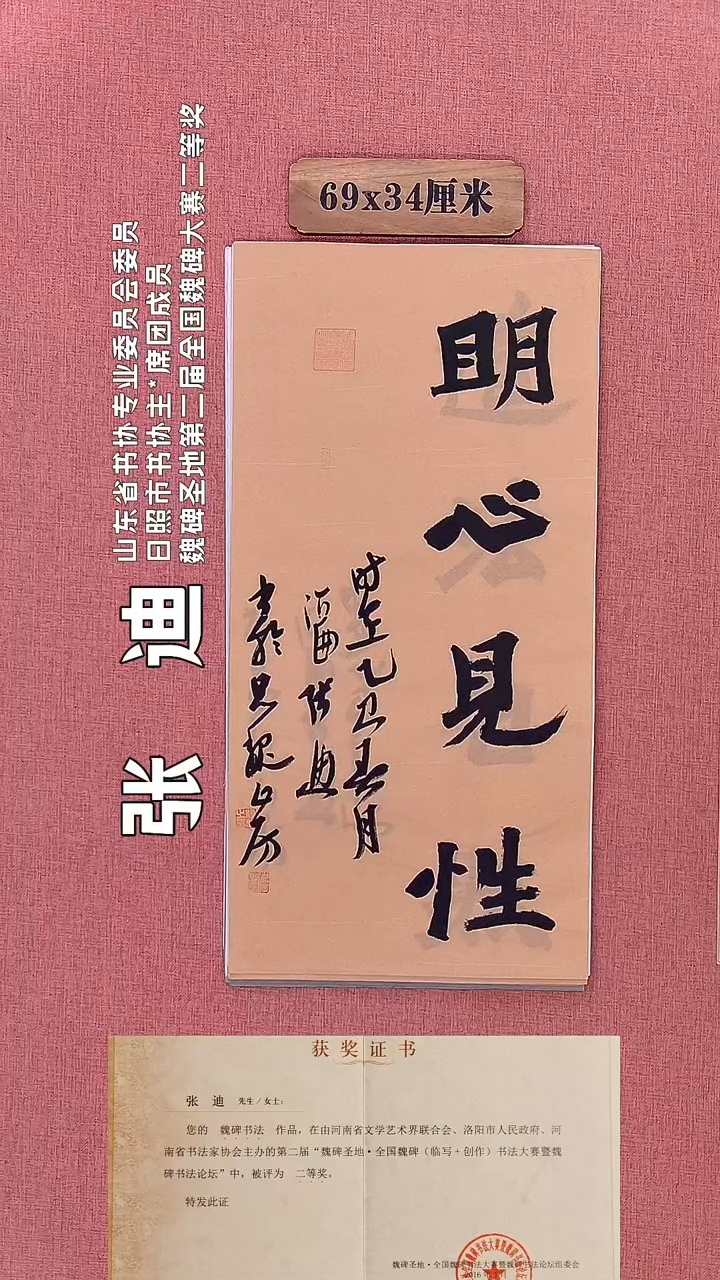 69x34厘米
明
心
見
性
山东省书协专业委员会委员
日照市书协主*席团成员
魏碑圣地第二届全国魏碑大赛二等奖
张 迪
获奖证书
张 迪 先生/女士：
您的 魏碑书法 作品，在由河南省文学艺术界联合会、洛阳市人民政府、河
南省书法家协会主办的第二届“魏碑圣地·全国魏碑（临写+创作）书法大赛暨魏
碑书法论坛”中，被评为 二等奖。
特发此证
魏碑圣地·全国魏碑书法大赛暨魏碑书法论坛组委会